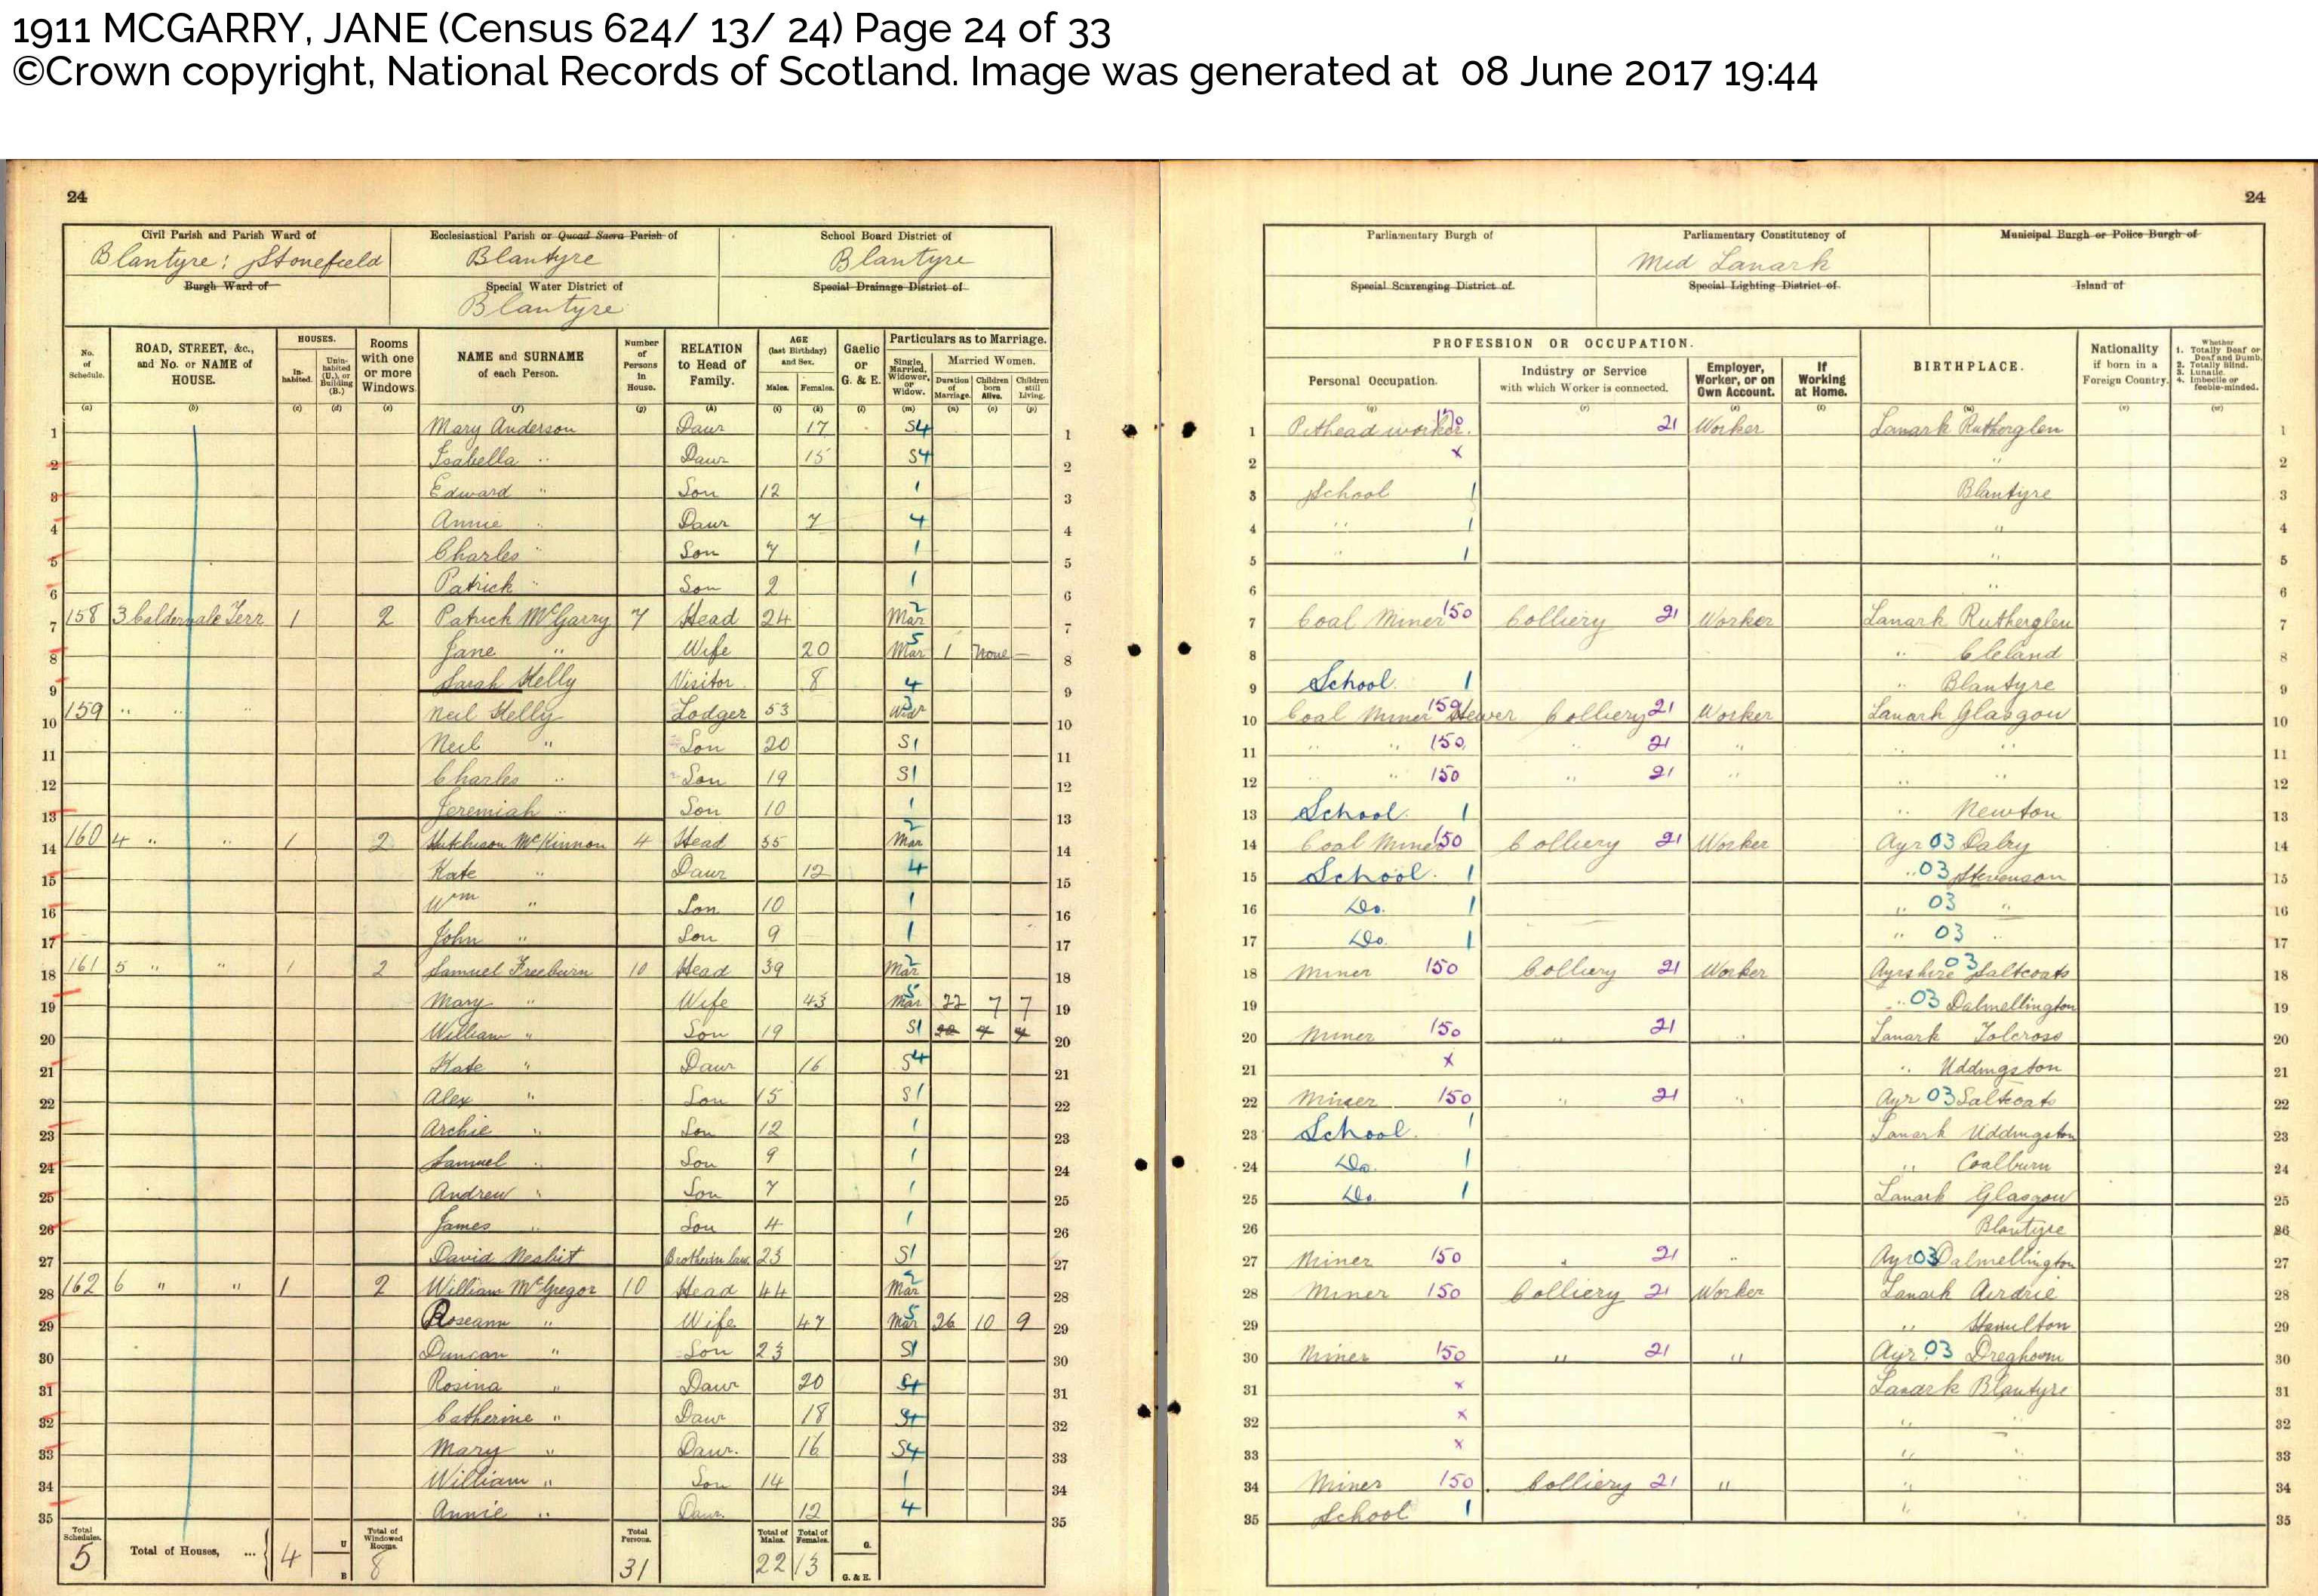 1911 MCGARRY, JANE (Census 624/ 13/ 24) Page 24 of 33
©Crown copyright, National Records of Scotland. Image was generated at 08 June 2017 19:44
24
Civil Parish and Parish Ward of Ecclesiastical Parish or Quoad Sacra Parish of School Board District of
Blantyre; Stonefield Blantyre Blantyre
Burgh Ward of Special Water District of Special Drainage District of
Blantyre
No. of Schedule. ROAD, STREET, &c., and No. or NAME of HOUSE. HOUSES. In-habited. Unin-habited (U.), or Building (B.) Rooms with one or more Windows NAME and SURNAME of each Person. Number of Persons in House. RELATION to Head of Family. AGE (last Birthday) and Sex. Males. Females. Gaelic or G. & E. Particulars as to Marriage. Single, Married, Widower, or Widow. Married Women. Duration of Marriage. Children born Alive. Children still Living.
(a) (b) (c) (d) (e) (f) (g) (h) (i) (k) (l) (m) (n) (o) (p)
1 Mary Anderson Daur 17 S4 1
2 Isabella " Daur 15 S4 2
3 Edward " Son 12 1 3
4 Annie " Daur 7 4 4
5 Charles " Son 7 1 5
6 Patrick " Son 2 1 6
7 158 3 Caldervale Terr 1 2 Patrick McGarry 7 Head 24 Mar 2 7
8 Jane " Wife 20 Mar 5 1 None – 8
9 Sarah Kelly Visitor 8 4 9
10 159 " " " Neil Kelly Lodger 53 Widr 3 10
11 Neil " Son 20 S1 11
12 Charles " Son 19 S1 12
13 Jeremiah " Son 10 1 13
14 160 4 " " 1 2 Hutchison McKinnon 4 Head 35 Mar 2 14
15 Kate " Daur 12 4 15
16 Wm " Son 10 1 16
17 John " Son 9 1 17
18 161 5 " " 1 2 Samuel Freeburn 10 Head 39 Mar 2 18
19 Mary " Wife 43 Mar 5 22 7 7 19
20 William " Son 19 S1 4 4 20
21 Kate " Daur 16 S4 21
22 Alex " Son 15 S1 22
23 Archie " Son 12 1 23
24 Samuel " Son 9 1 24
25 Andrew " Son 7 1 25
26 James " Son 4 1 26
27 David Nesbit Brotherinlaw 23 S1 27
28 162 6 " " 1 2 William McGregor 10 Head 44 Mar 2 28
29 Roseann " Wife 47 Mar 5 26 10 9 29
30 Duncan " Son 23 S1 30
31 Rosina " Daur 20 S4 31
32 Catherine " Daur 18 S4 32
33 Mary " Daur. 16 S4 33
34 William " Son 14 1 34
35 Annie " Daur 12 4 35
Total Schedules. 5 Total of Houses, ... 4 U B Total of Windowed Rooms. 8 Total Persons. 31 Total of Males. 22 Total of Females. 13 G. G. & E.
24
Parliamentary Burgh of Parliamentary Constitutency of Municipal Burgh or Police Burgh of
Mid Lanark
Special Scavenging District of Special Lighting District of Island of
PROFESSION OR OCCUPATION. BIRTHPLACE. Nationality if born in a Foreign Country. Whether 1. Totally Deaf or Deaf and Dumb. 2. Totally Blind. 3. Lunatic. 4. Imbecile or feeble-minded.
Personal Occupation. Industry or Service with which Worker is connected. Employer, Worker, or on Own Account. If Working at Home.
(q) (r) (s) (t) (u) (v) (w)
1 Pithead worker. 21 Worker Lanark Rutherglen 1
2 x " 2
3 School 1 Blantyre 3
4 " 1 " 4
5 " 1 " 5
6 " 6
7 Coal Miner 150 Colliery 21 Worker Lanark Rutherglen 7
8 " Cleland 8
9 School. 1 " Blantyre 9
10 Coal Miner 150 Hewer Colliery 21 Worker Lanark Glasgow 10
11 " " 150 " 21 " " " 11
12 " " 150 " 21 " " " 12
13 School. 1 " Newton 13
14 Coal Miner 150 Colliery 21 Worker Ayr 03 Dalry 14
15 School. 1 " 03 Stevenson 15
16 Do. 1 " 03 " 16
17 Do. 1 " 03 " 17
18 Miner 150 Colliery 21 Worker Ayrshire 03 Saltcoats 18
19 " 03 Dalmellington 19
20 Miner 150 " 21 " Lanark Tolcross 20
21 x " Uddingston 21
22 Miner 150 " 21 " Ayr 03 Saltcoats 22
23 School. 1 Lanark Uddingston 23
24 Do. 1 " Coalburn 24
25 Do. 1 Lanark Glasgow 25
26 Blantyre 26
27 Miner 150 " 21 " Ayr 03 Dalmellington 27
28 Miner 150 Colliery 21 Worker Lanark Airdrie 28
29 " Hamilton 29
30 Miner 150 " 21 " Ayr 03 Dreghorn 30
31 x Lanark Blantyre 31
32 x " " 32
33 x " " 33
34 Miner 150 Colliery 21 " " " 34
35 School 1 " " 35